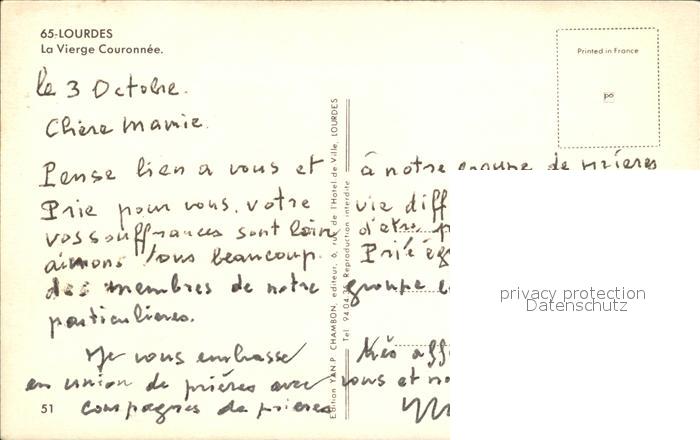 65-LOURDES
La Vierge Couronnée.
Printed in France
le 3 Octobre.
Chère Mamie.
Pense bien a vous et à notre groupe de prieres
Prie pour vous. votre vie diff
vos souffrances sont loin d'etre p
aimons tous beaucoup. Prié ég
des membres de notre groupe e
particulieres.
Je vous embrasse très aff
en union de prières avec vous et no
compagnes de prieres
51
Edition YAN.P. CHAMBON, editeur, 6, rue de l'Hotel de Ville, LOURDES
Tel 94.04. Reproduction interdite
privacy protection
Datenschutz